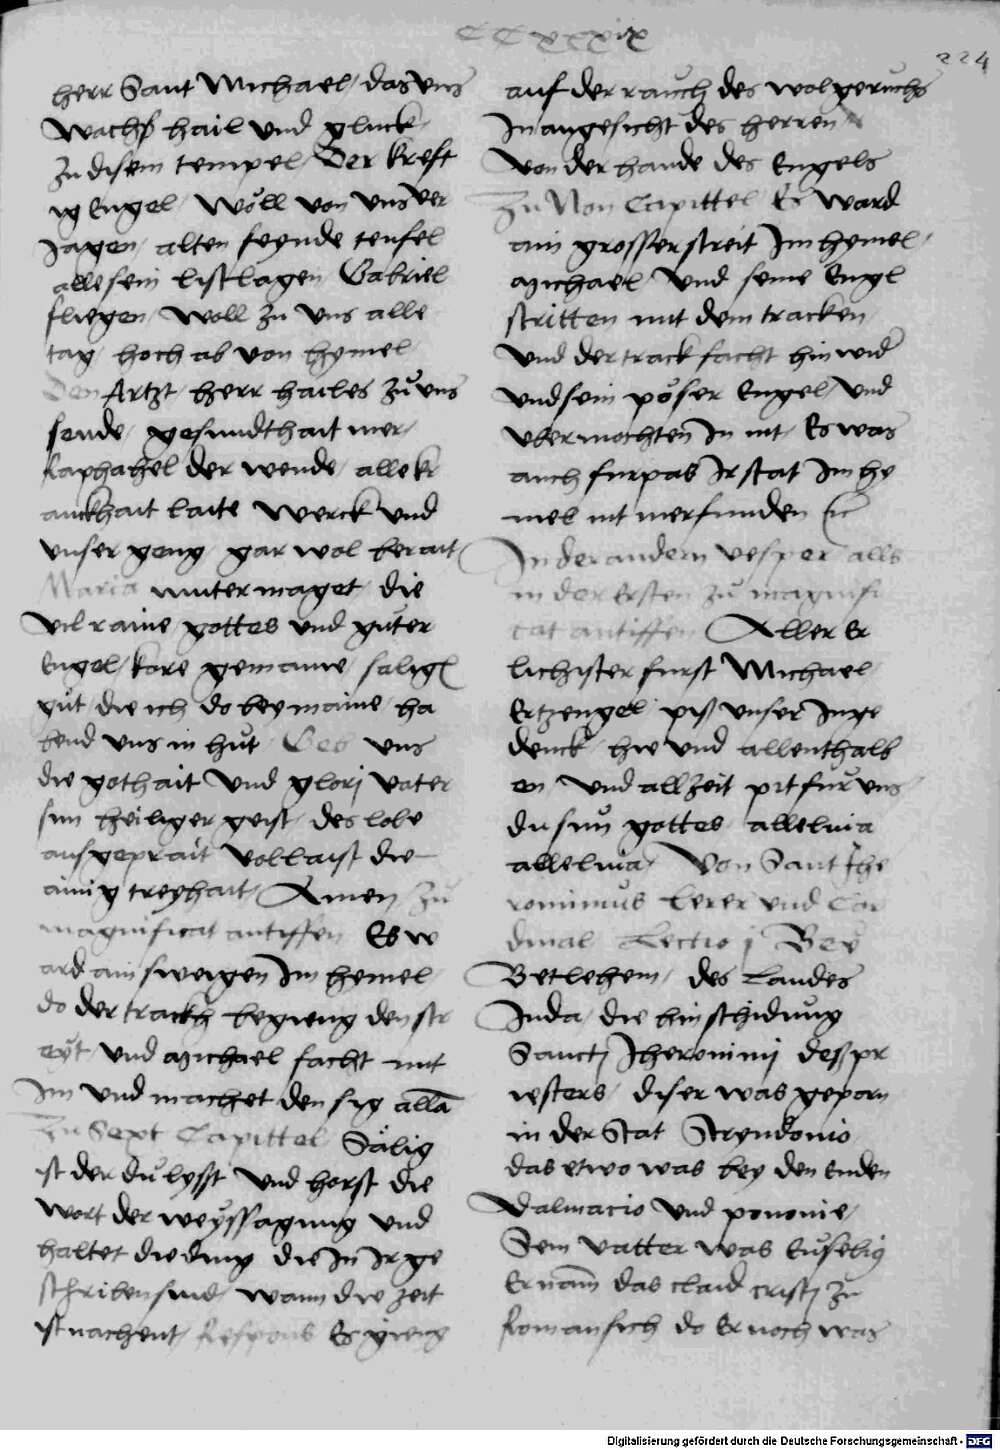 CCxxxix
224
herr Sant Michael / das uns
wachs hail und gluck
zu disem tempel / Der kreft
ig Engel / wöll von uns ver
jagen / alten feynde teufel
alle sein listlagen / Gabriel
fliegen / woll zu uns alle
tag / hoch ab von hymel
Den Artzt / herr hailes zu uns
sende / gesundthait mer /
Raphahel der wende / alle kr
anckhait laite werck und
unser geng / gar wol berait
Maria muter maget / die
vil raine gottes und guter
Engel / kore gemaine / salig
gut / die ich do bey maine / ha
bend uns in hut / Geb uns
die gothait und glorj vater
sun heiliger geist / des lobe
ausgeprait vollaist die
ainig treyhait / Amen / Zu
magnificat antiffen Es w
ard ain sweigen Im hemel /
do der trackh begieng den str
eyt / und Michael facht mit
Im und machet den sig alla
Zu Sext Capittel Sälig
ist der du lysst und horst die
wort der weyssagung und
haltet die ding die In Ir ge
schriben sind / wann die zeit
ist nachent / Respons Es gieng
auf der rauch des wolgeruchs
In angesicht des herren
von der hande des Engels
Zu Non Capittel Es ward
ain grosser streit Im hemel /
Michael / und seine Engl
stritten mit dem tracken /
und der track facht hin wid
und sein pöser Engel / und
ubermochten In nit / Es was
auch furpas Ir stat Im he
mel nit mer funden
In der andern vesper alls
in der Ersten zu magnifi
cat antiffen Aller Er
lichister furst Michael
Ertzengel piß unser Inge
denck / hie und allenthalb
en / und allzeit pit fur uns
du sun gottes alleluia
alleluia / Von Sant Jhe
ronimus lerer und Car
dinal / Lectio j Bey
Betlehem / des Landes
Juda / die hinschidung
Sanctj Jheronimj des pr
iesters / diser was geporn
in der Stat Strydonio
das etwo was bey den Enden
Dalmacio und pononie /
Sein vatter was Euselig
Er nam das claid cristj zu
Rom an sich do Er noch was
Digitalisierung gefördert durch die Deutsche Forschungsgemeinschaft - DFG